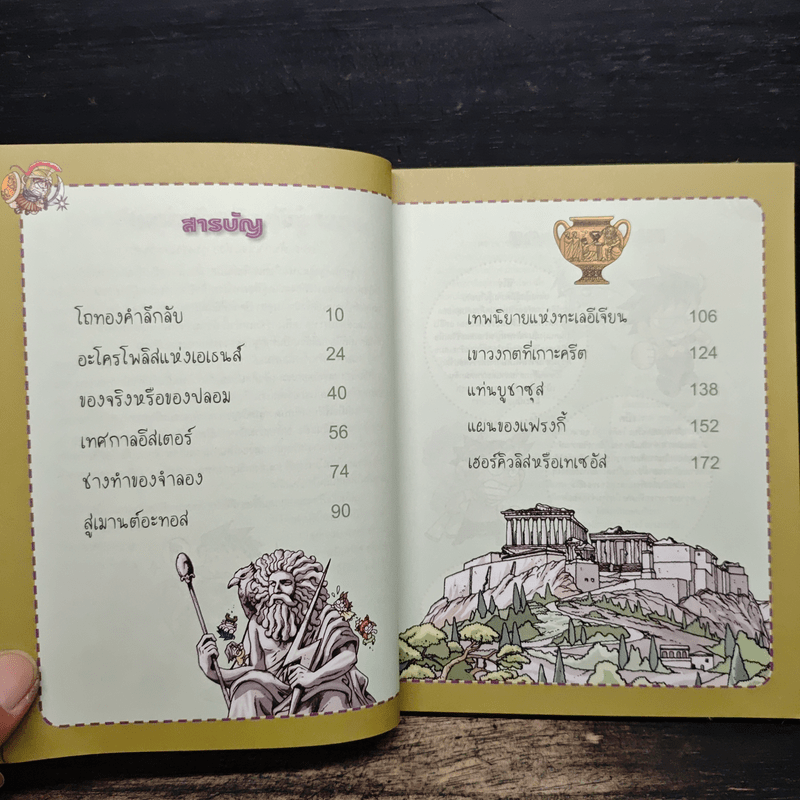 สารบัญ
โถทองคำลึกลับ 10
อะโครโพลิสแห่งเอเธนส์ 24
ของจริงหรือของปลอม 40
เทศกาลอีสเตอร์ 56
ช่างทำของจำลอง 74
สู่เมานต์อะทอส 90
เทพนิยายแห่งทะเลอีเจียน 106
เขาวงกตที่เกาะครีต 124
แท่นบูชาซุส 138
แผนของแฟรงกี้ 152
เฮอร์คิวลิสหรือเทเซอัส 172